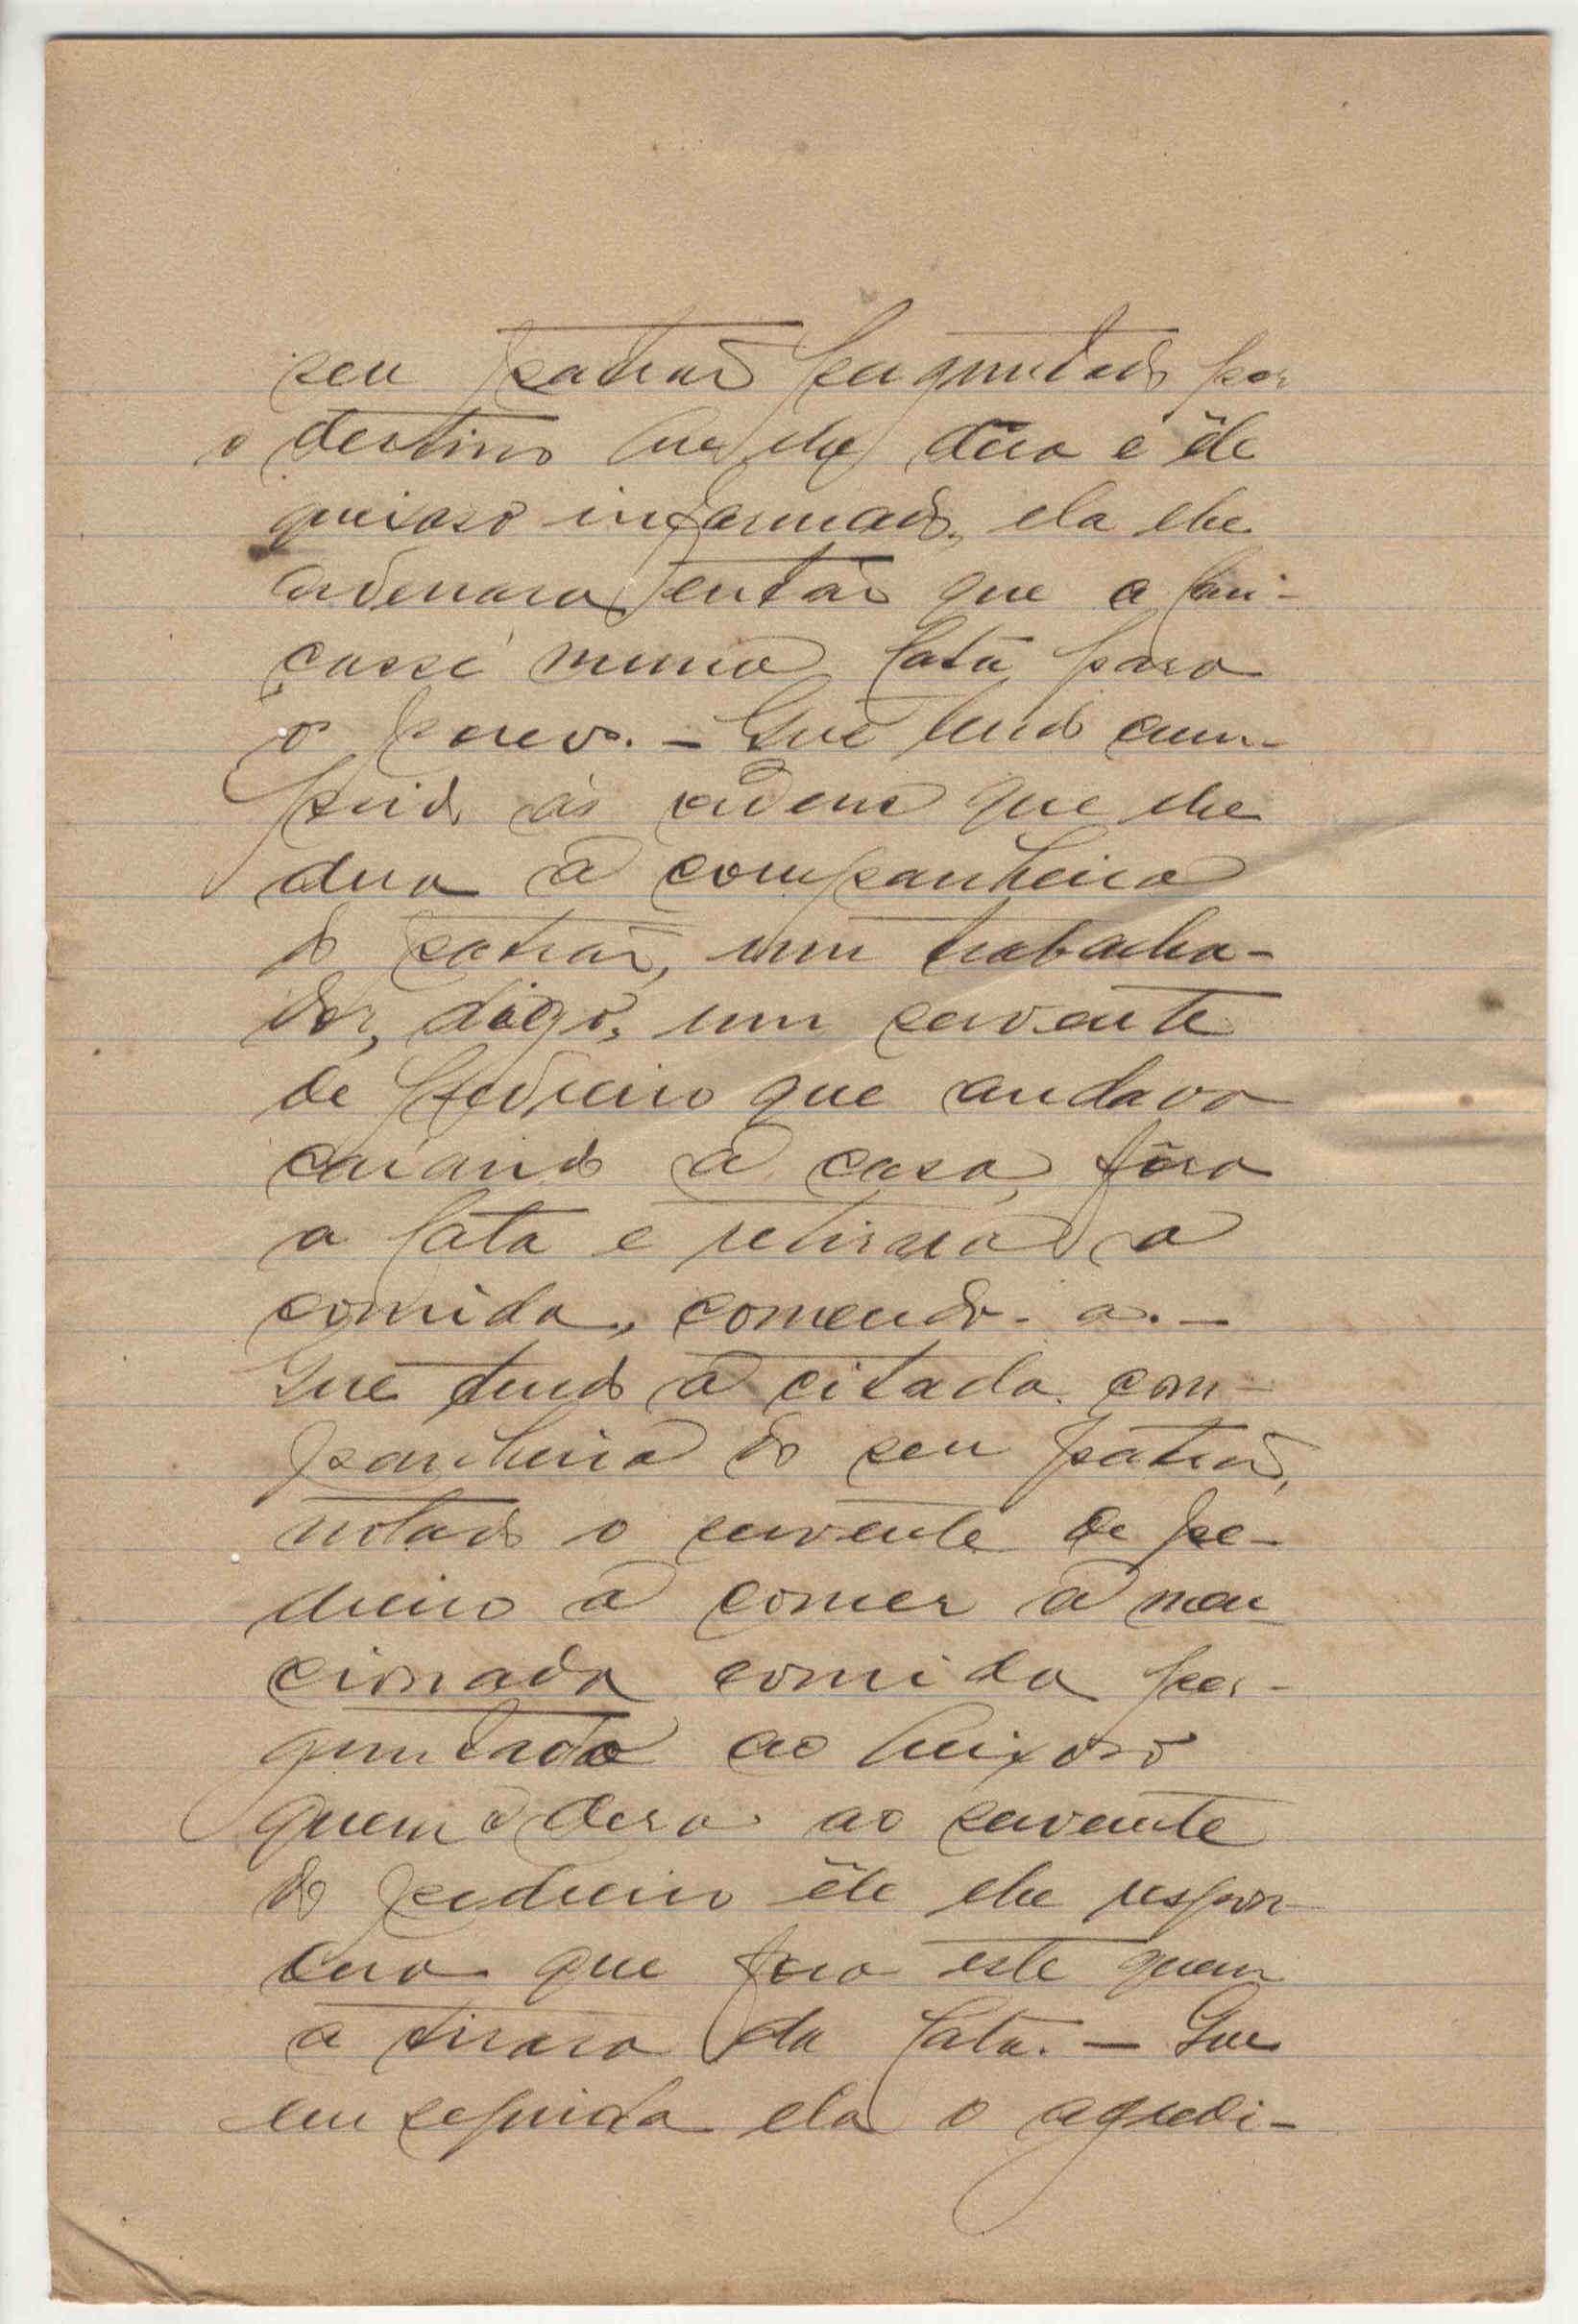 seu patrão perguntado por
o destino que lhe dera e êle
queixoso informado, ela lhe
ordenara então que a
casse numa lata para
o porco. — Que tendo cum-
prido as ordens que lhe
dera a companheira
do patrão, um trabalha-
dor, digo, um servente
de pedreiro que andava
caiando a casa, fôra
a lata e retirara a
comida, comendo-a. —
Que tendo a citada com-
panheira do seu patrão,
notado o servente de pe-
dreiro a comer a men
cionada comida per-
guntado ao queixoso
quem a dera ao servente
do pedreiro êle lhe respon-
dera que fora este quem
a tirara da lata. — Que
em seguida ela o agredi-